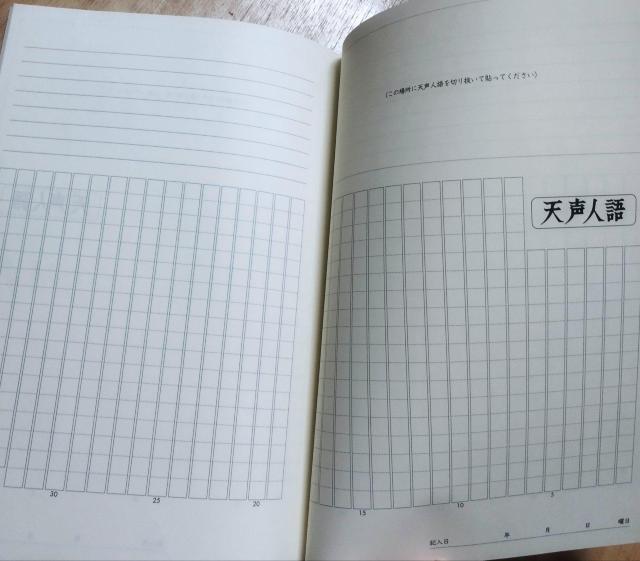 (この場所に天声人語を切り抜いて貼ってください)
天声人語
5
10
15
20
25
30
記入日 年 月 日 曜日